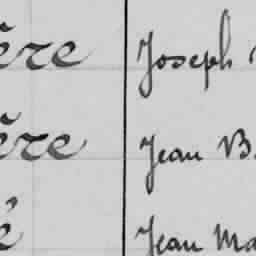 ère Joseph
ère Jean B.
é Jean Ma